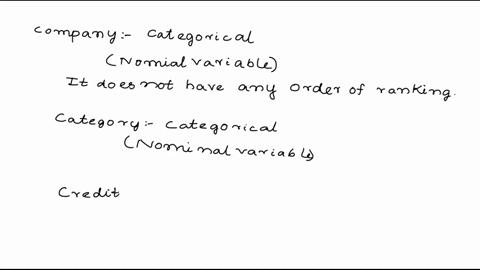 Company:- Categorical
(Nomial variable)
It does not have any order of ranking.
Category:- Categorical
(Nominal variable)
Credit